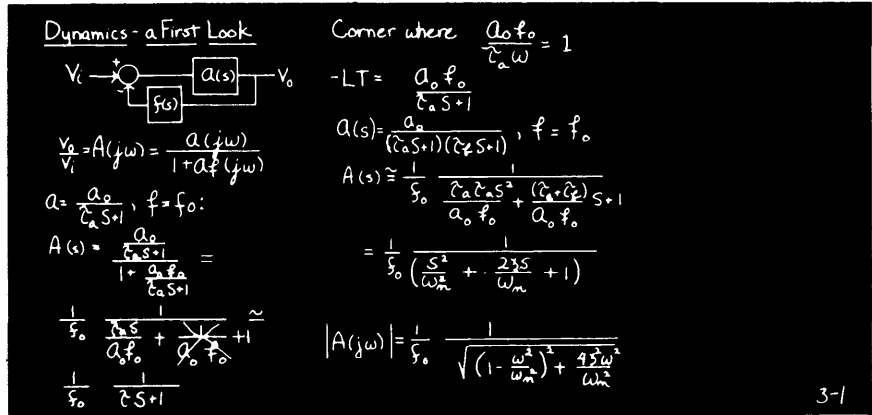 Dynamics - a First Look
Vi + - a(s) Vo
f(s)
Vo/Vi = A(jω) = a(jω) / (1+af(jω))
a = a₀/(τₐS+1), f = f₀:
A(s) = (a₀/(τₐS+1)) / (1 + a₀f₀/(τₐS+1)) =
1/f₀ · 1/(τₐS/(a₀f₀) + 1/(a₀f₀) + 1) ≅
1/f₀ · 1/(τS+1)
Corner where a₀f₀/(τₐω) = 1
-LT = a₀f₀/(τₐS+1)
a(s) = a₀/((τₐS+1)(τ_fS+1)), f = f₀
A(s) ≅ 1/f₀ · 1/(τₐτₐS²/(a₀f₀) + (τₐ+τ_f)/(a₀f₀) S+1)
= 1/f₀ · 1/(S²/ωₙ² + 2ζS/ωₙ + 1)
|A(jω)| = 1/f₀ · 1/√((1 - ω²/ωₙ²)² + 4ζ²ω²/ωₙ²)
3-1